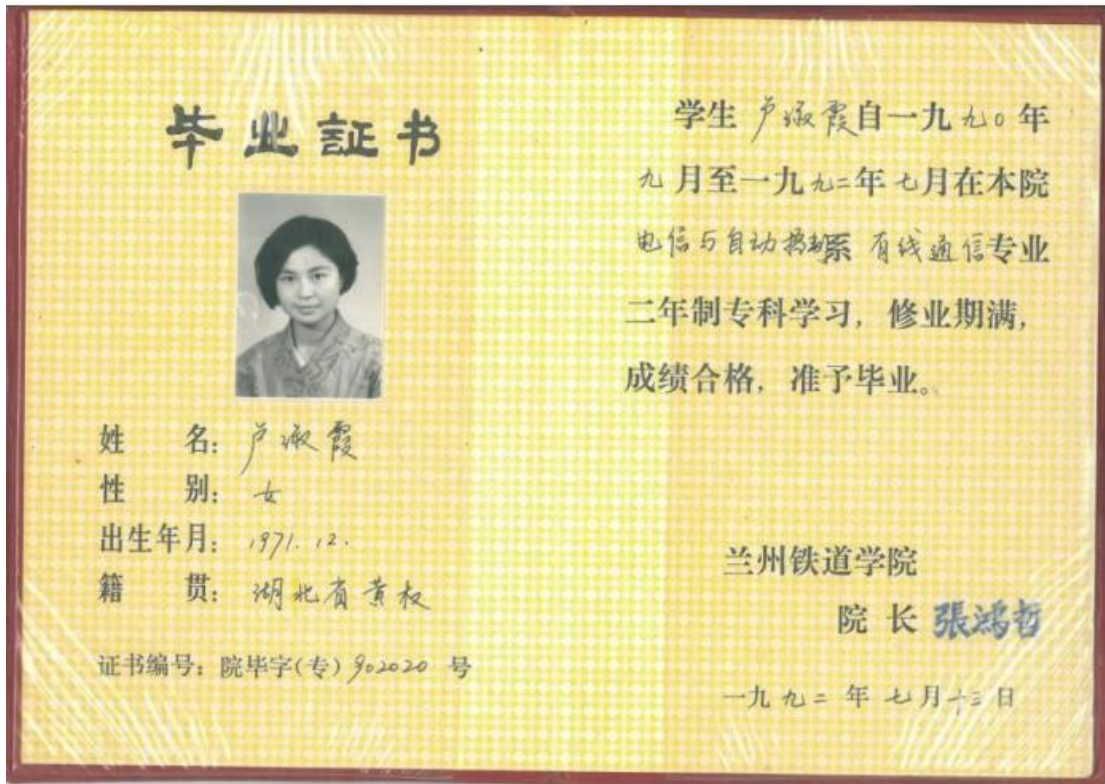 毕业証书
姓 名：卢淑霞
性 别：女
出生年月：1971.12.
籍 贯：湖北省黄
证书编号：院毕字(专)902020 号
学生 卢淑霞自一九九0年
九月至一九九二年七月在本院
电信与自动控制系 有线通信专业
二年制专科学习，修业期满，
成绩合格，准予毕业。
兰州铁道学院
院 长 張鴻哲
一九九二 年 七月十三日